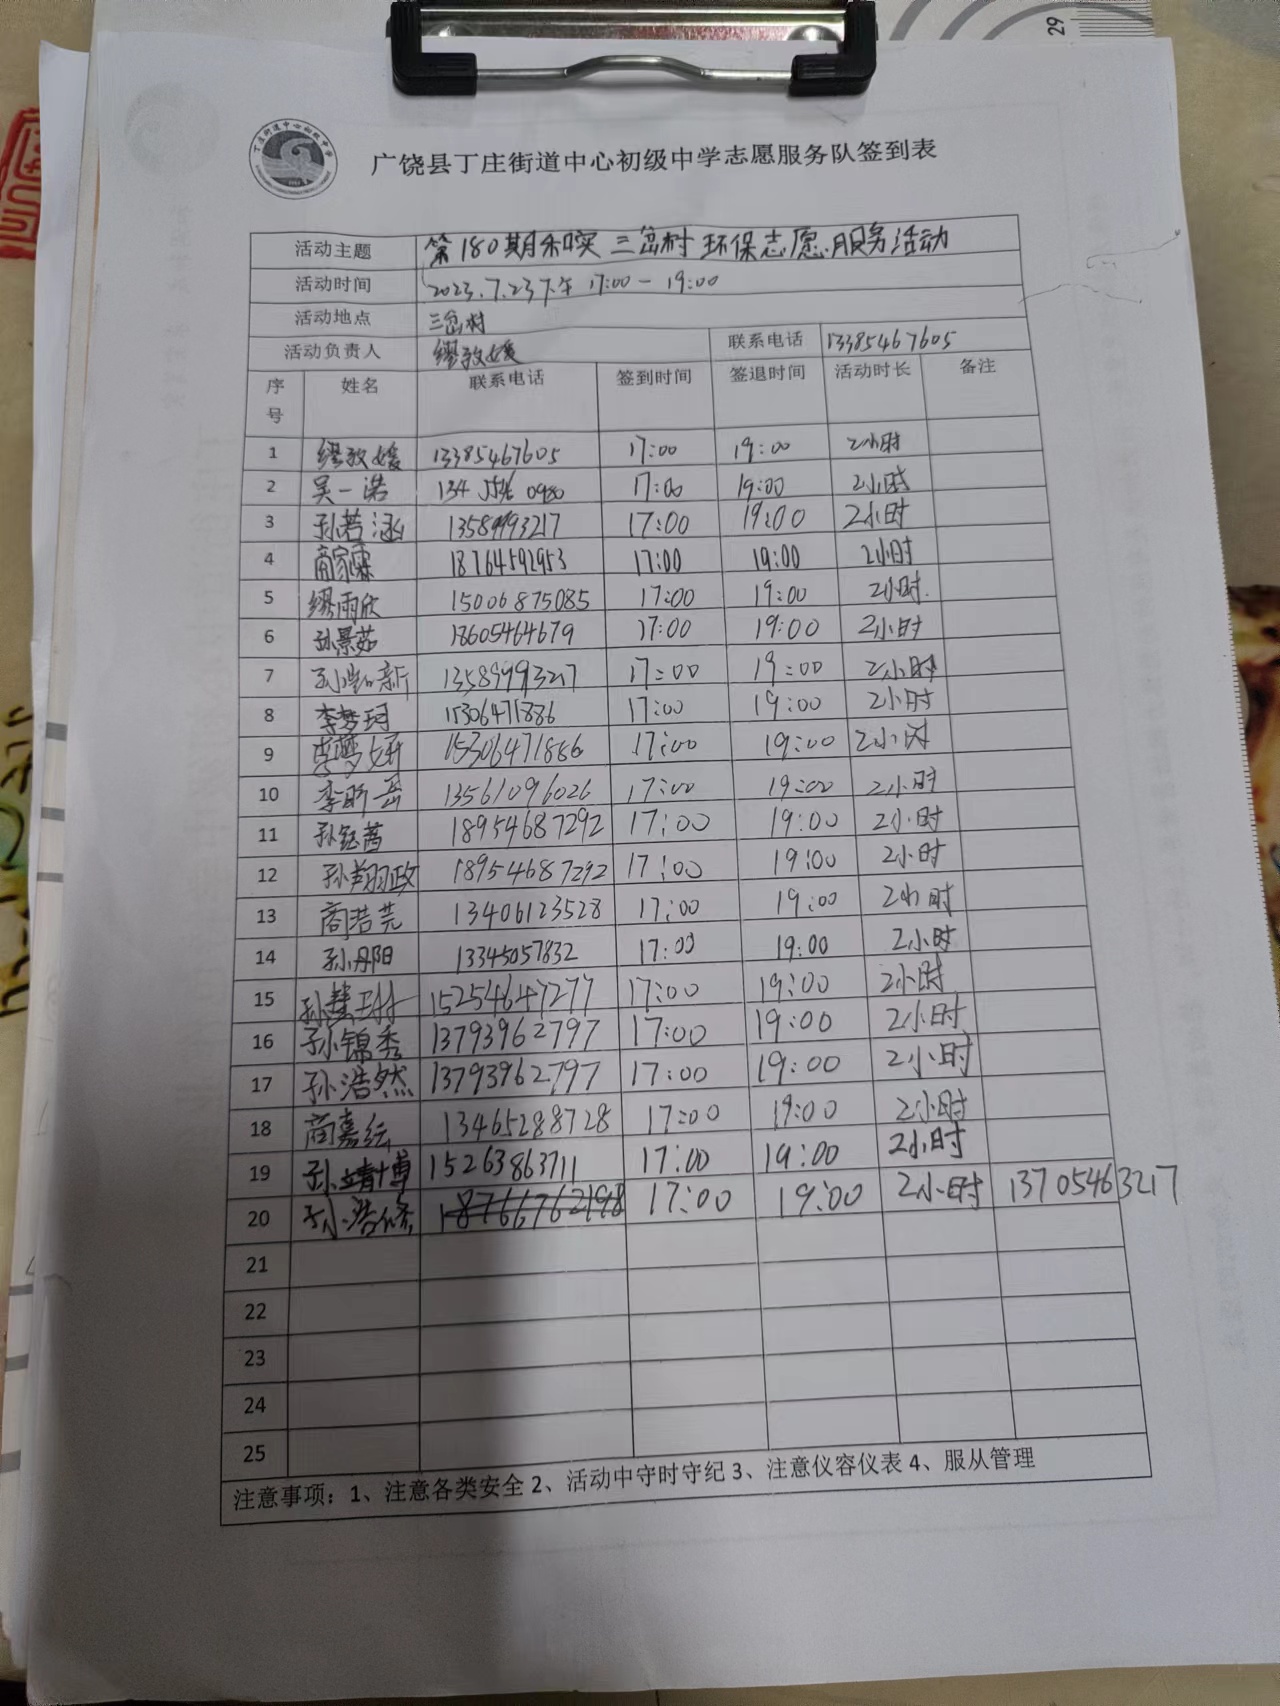 29
丁庄街道中心初级中学
广饶县丁庄街道中心初级中学志愿服务队签到表
活动主题 第180期和暖三岔村环保志愿服务活动
活动时间 2023.7.23下午 17:00-19:00
活动地点 三岔村
活动负责人 缪致媛 联系电话 13385467605
序号 姓名 联系电话 签到时间 签退时间 活动时长 备注
1 缪致媛 13385467605 17:00 19:00 2小时
2 吴一诺 134 0980 17:00 19:00 2小时
3 孙若涵 13589993217 17:00 19:00 2小时
4 商家霖 18764592953 17:00 19:00 2小时
5 缪雨欣 15006875085 17:00 19:00 2小时
6 孙景茹 18605464679 17:00 19:00 2小时
7 13589993217 17:00 19:00 2小时
8 李梦珂 15306471886 17:00 19:00 2小时
9 李梦妍 15306471886 17:00 19:00 2小时
10 李昕岳 13561096026 17:00 19:00 2小时
11 孙钰茜 18954687292 17:00 19:00 2小时
12 孙翔政 18954687292 17:00 19:00 2小时
13 商浩芫 13406123528 17:00 19:00 2小时
14 孙丹阳 13345057832 17:00 19:00 2小时
15 孙慧琳 15254647277 17:00 19:00 2小时
16 孙锦秀 13793962797 17:00 19:00 2小时
17 孙浩然 13793962797 17:00 19:00 2小时
18 商嘉纭 13465288728 17:00 19:00 2小时
19 孙靖博 15263863711 17:00 19:00 2小时
20 孙浩修 18766762198 17:00 19:00 2小时 13705463217
21
22
23
24
25
注意事项：1、注意各类安全 2、活动中守时守纪 3、注意仪容仪表 4、服从管理